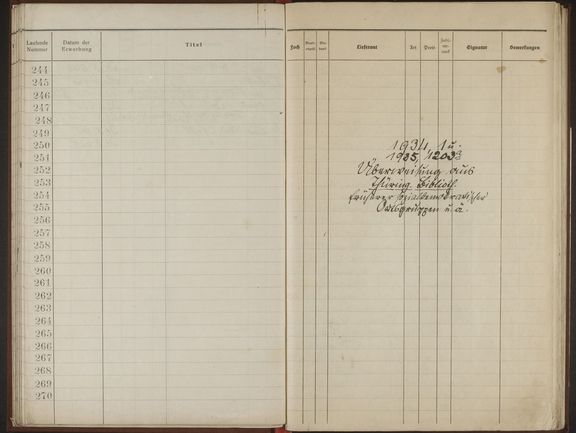 Laufende Nummer
Datum der Erwerbung
Titel
244
245
246
247
248
249
250
251
252
253
254
255
256
257
258
259
260
261
262
263
264
265
266
267
268
269
270
Fach
Lieferant
Art
Preis
Signatur
Bemerkungen
1934, 1 u.
1935, 1203
Überweisung aus
Thüring. Biblioth.
früherer sozialdemokratischer
Ortsgruppen u. ä.